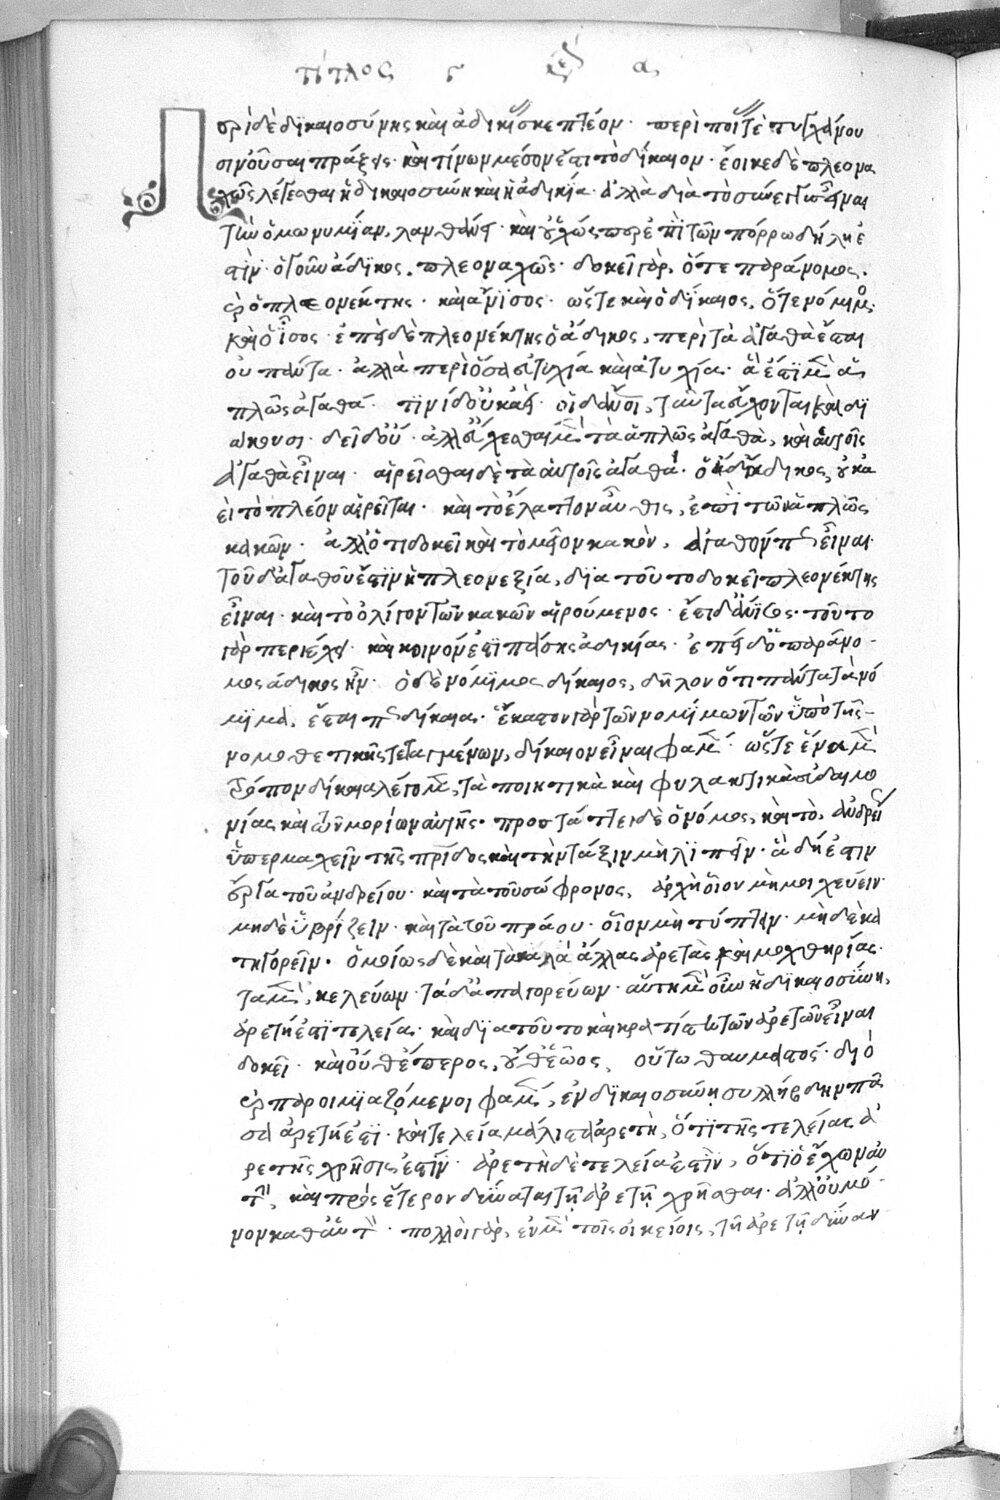 τίτλος γ α
Περὶ δὲ δικαιοσύνης καὶ ἀδικίας σκεπτέον· περὶ ποίας τὲ τυγχάνου
σιν οὖσαι πράξεις· καὶ τίνων μέσον ἐστὶ τὸ δίκαιον· ἔοικε δὲ πλεονα
χῶς λέγεσθαι ἡ δικαιοσύνη καὶ ἡ ἀδικία· ἀλλὰ διὰ τὸ σύνεγγυς εἶναι
τὴν ὁμωνυμίαν, λανθάνει· καὶ οὐχ ὥσπερ ἐπὶ τῶν πόρρω δήλη ἐ
στὶν· ὁ γοῦν ἄδικος, πλεοναχῶς· δοκεῖ γὰρ, ὅ τε παράνομος,
καὶ ὁ πλεονέκτης· καὶ ἄνισος· ὥστε καὶ ὁ δίκαιος, ὅ τε νόμιμος
καὶ ὁ ἴσος· ἐπεὶ δὲ πλεονέκτης ὁ ἄδικος, περὶ τὰ ἀγαθὰ ἔσται
οὐ πάντα· ἀλλὰ περὶ ὅσα εὐτυχία καὶ ἀτυχία· ἅ ἐστι μὲν ἁ
πλῶς ἀγαθά· τινὶ δ' οὐκ ἀεί· οἱ δ' ἄνθρωποι, ταῦτα εὔχονται καὶ δι
ώκουσι· δεῖ δ' οὔ· ἀλλ' εὔχεσθαι μὲν τὰ ἁπλῶς ἀγαθὰ, καὶ αὐτοῖς
ἀγαθὰ εἶναι· αἱρεῖσθαι δὲ τὰ αὐτοῖς ἀγαθά· ὁ δ' ἄδικος, οὐκ ἀ
εὶ τὸ πλέον αἱρεῖται· καὶ τὸ ἔλαττον αὖθις, ἐπὶ τῶν ἁπλῶς
κακῶν· ἀλλ' ὅτι δοκεῖ καὶ τὸ μεῖον κακὸν, ἀγαθόν πως εἶναι
τοῦ δ' ἀγαθοῦ ἐστὶν ἡ πλεονεξία, διὰ τοῦτο δοκεῖ πλεονέκτης
εἶναι· καὶ τὸ ὀλίγον τῶν κακῶν αἱρούμενος· ἔστι δ' ἄνισος· τοῦτο
γὰρ περιέχει· καὶ κοινόν ἐστι πάσης ἀδικίας· ἐπεὶ δ' ὁ παράνο-
μος ἄδικος ἦν· ὁ δὲ νόμιμος δίκαιος, δῆλον ὅτι πάντα τὰ νό
μιμα, ἔσται πως δίκαια· ἕκαστον γὰρ τῶν νομίμων τῶν ὑπὸ τῆς
νομοθετικῆς τεταγμένων, δίκαιον εἶναι φαμὲν· ὥστε ἕνα μὲν
τρόπον δίκαια λέγομεν, τὰ ποιητικὰ καὶ φυλακτικὰ εὐδαιμο
νίας καὶ τῶν μορίων αὐτῆς· προστάττει δὲ ὁ νόμος, καὶ τὸ, ἀνδρεί
ὑπερμαχεῖν τῆς πατρίδος καὶ τὴν τάξιν μὴ λιπεῖν· ἃ δή ἐστιν
ἔργα τοῦ ἀνδρείου· καὶ τὰ τοῦ σώφρονος, οἷον μὴ μοιχεύειν
μηδὲ ὑβρίζειν· καὶ τὰ τοῦ πράου· οἷον μὴ τύπτειν· μηδὲ κα
τηγορεῖν· ὁμοίως δὲ καὶ τὰ κατὰ ἄλλας ἀρετὰς καὶ μοχθηρίας·
τὰ μὲν, κελεύων· τὰ δ' ἀπαγορεύων· αὕτη μὲν οὖν ἡ δικαιοσύνη,
ἀρετή ἐστι τελεία· καὶ διὰ τοῦτο καὶ κρατίστη τῶν ἀρετῶν εἶναι
δοκεῖ· καὶ οὔθ' ἕσπερος, οὔθ' ἑῶος, οὕτω θαυμαστός· διό
καὶ παροιμιαζόμενοι φαμὲν, ἐν δὲ δικαιοσύνῃ συλλήβδην πᾶ
σα ἀρετή ἐστι· καὶ τελεία μάλιστα ἀρετὴ, ὅτι τῆς τελείας ἀ
ρετῆς χρῆσις ἐστίν· ἀρετὴ δὲ τελεία ἐστὶν, ὅτι ὁ ἔχων αὐ
τὴν, καὶ πρὸς ἕτερον δύναται τῇ ἀρετῇ χρῆσθαι· ἀλλ' οὐ μό-
νον καθ' αὑτόν· πολλοὶ γὰρ, ἐν μὲν τοῖς οἰκείοις, τῇ ἀρετῇ δύναν